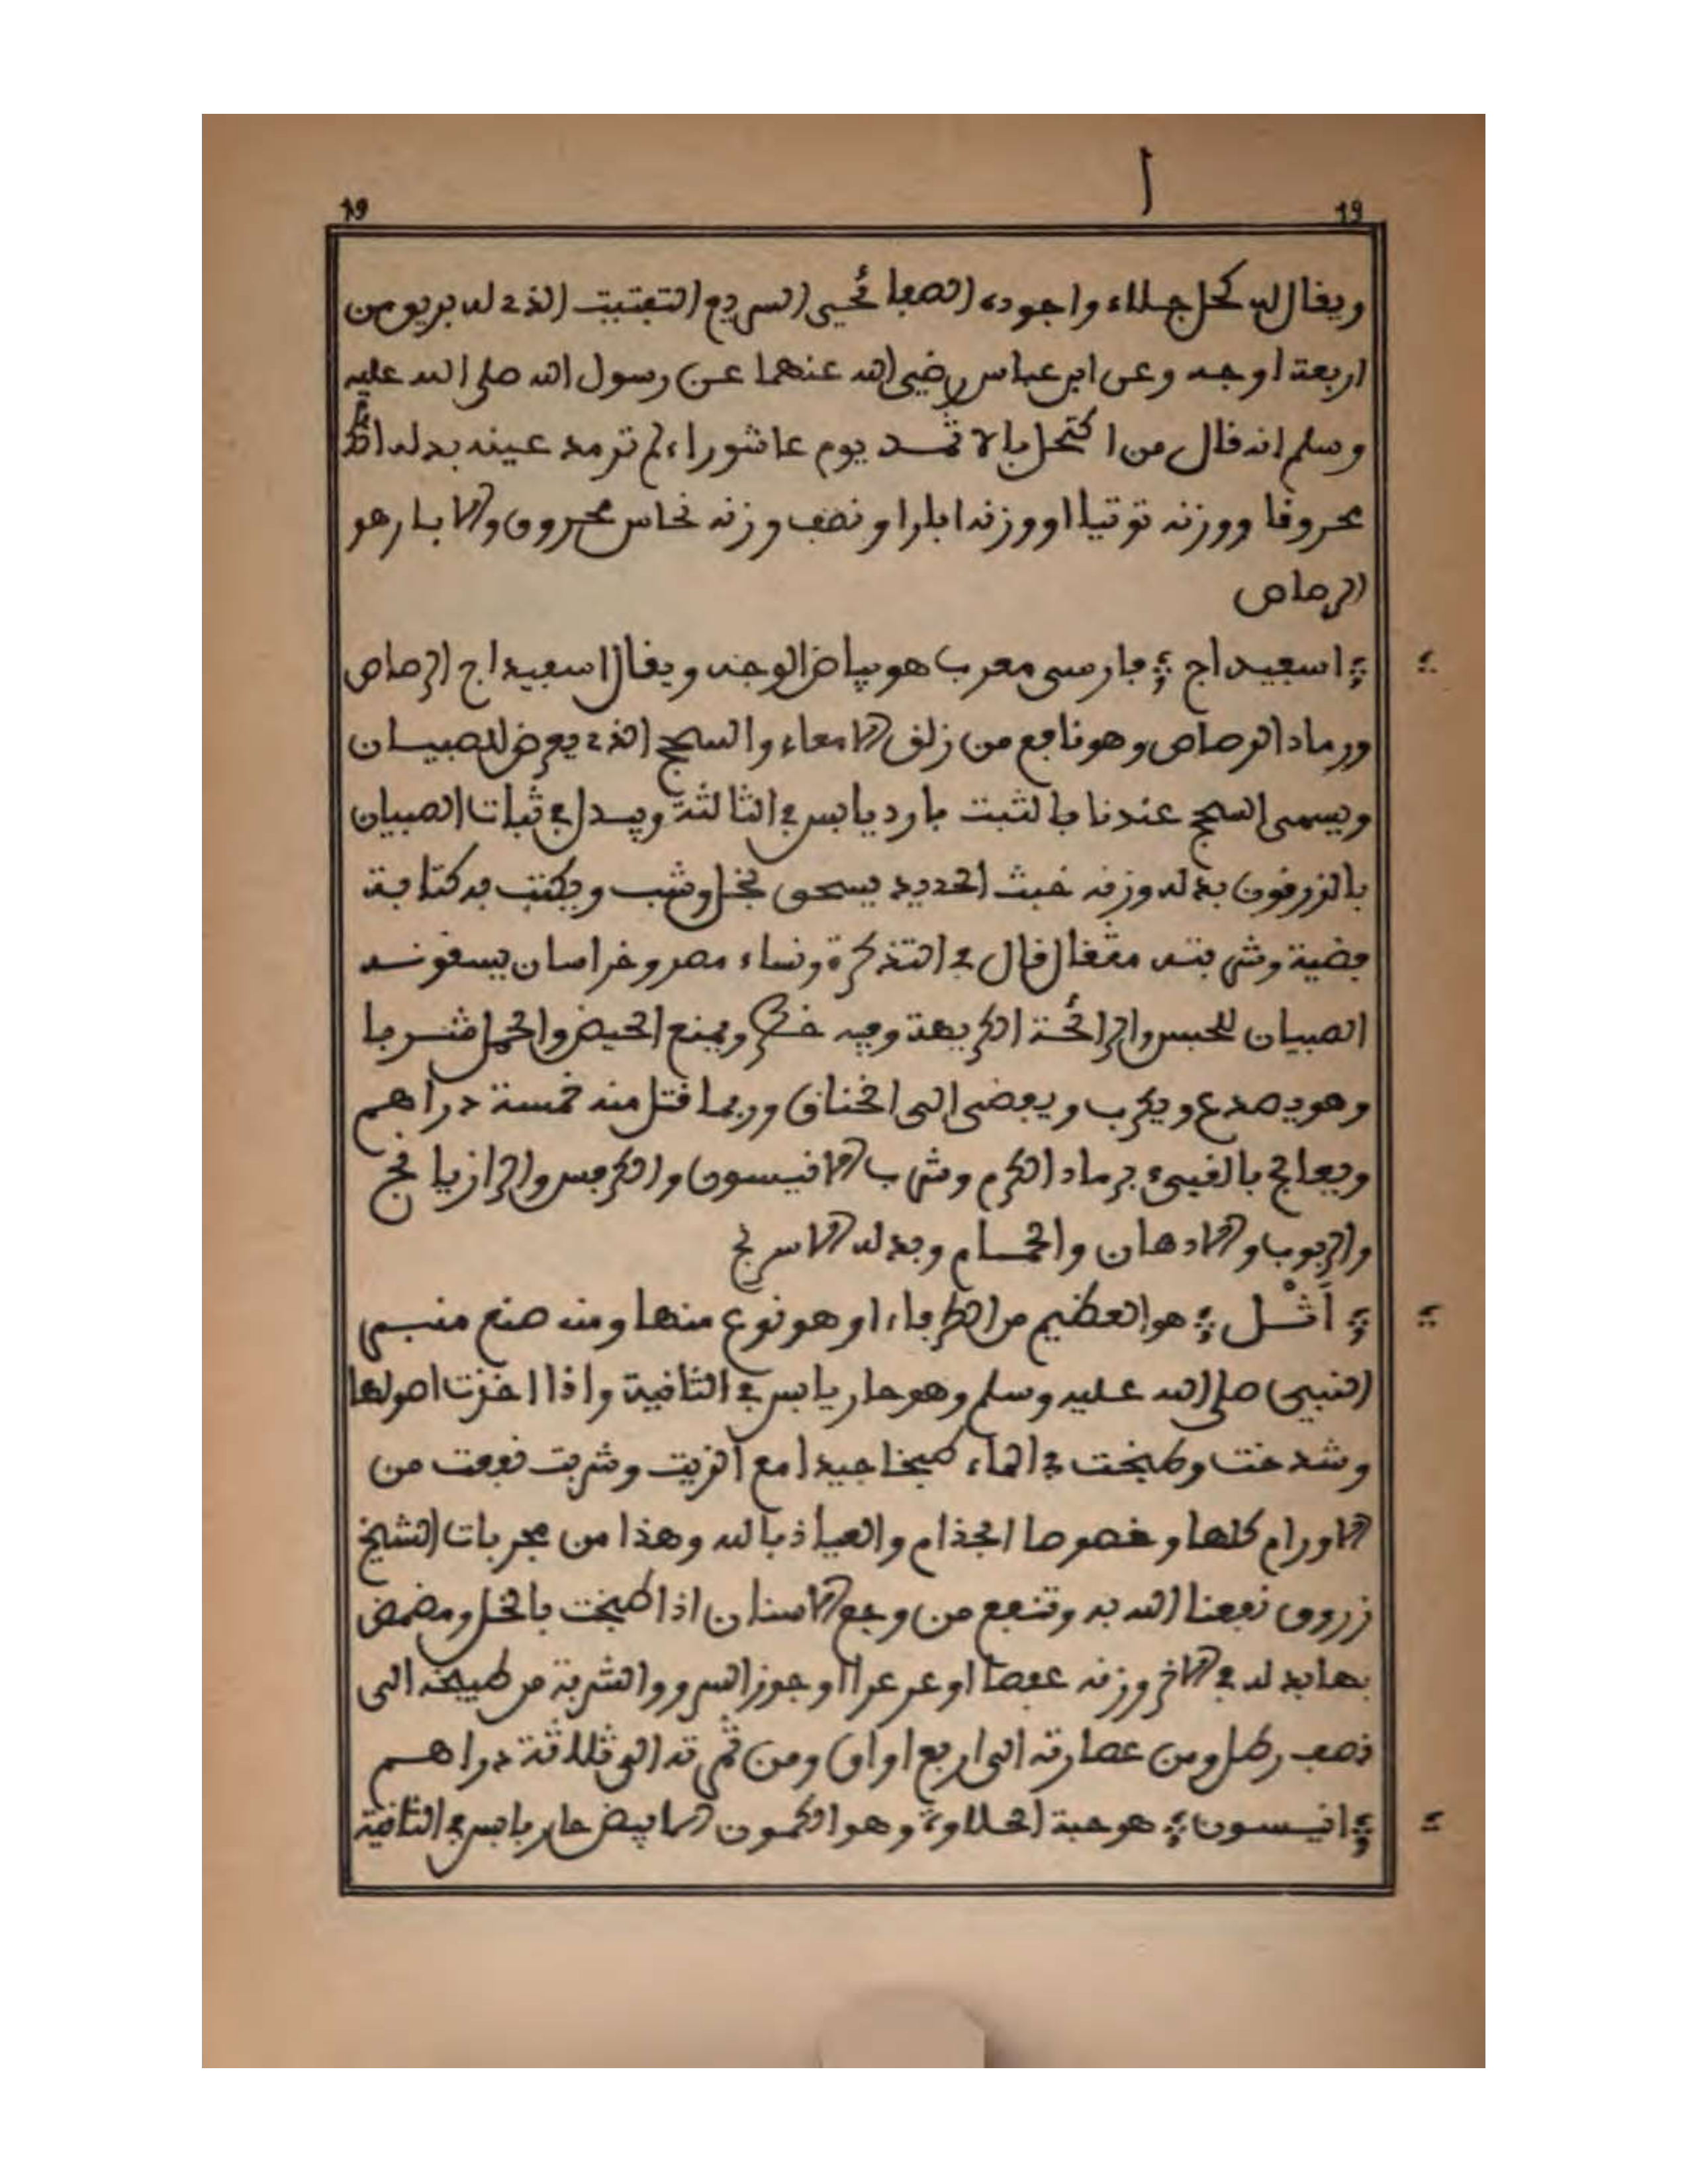 ا
19 19
ويقال له كحل جلاء واجوده الصفائحي السريع التفتيت الذي له بريق من
اربعة اوجه وعن ابن عباس رضي الله عنهما عن رسول الله صلى الله عليه
وسلم انه قال من اكتحل بالاثمد يوم عاشوراء لم ترمد عينه بدله
محروقا ووزنه توتيا او وزنه ابارا ونصف وزنه نحاس محروق والابار هو
الرصاص
اسفيداج فارسي معرب هو بياض الوجه ويقال اسفيداج الرصاص
ورماد الرصاص وهو نافع من زلق الامعاء والسحج الذي يعرض للصبيان
ويسمى السحج عندنا بالثبت بارد يابس في الثالثة ويبدل في ثبات الصبيان
بالزرقون بدله وزنه خبث الحديد يسحق بخل وشب ويكتب به كتابة
فضية وشربته مثقال قال في التذكرة ونساء مصر وخراسان يسقونه
الصبيان للحبس والرائحة الكريهة وفيه خطر ويمنع الحيض والحمل شربا
وهو يصدع ويكرب ويفضي الى الخناق وربما قتل منه خمسة دراهم
ويعالج بالقيىء برماد الكرم وشرب الانيسون والكرفس والرازيانج
والربوب والادهان والحمام وبدله الاسرنج
أَثْل هو العظيم من الطرفاء او هو نوع منها ومنه صنع منبر
النبي صلى الله عليه وسلم وهو حار يابس في الثانية واذا اخذت اصولها
وشدخت وطبخت في الماء طبخا جيدا مع الزيت وشربت نفعت من
الاورام كلها وخصوصا الجذام والعياذ بالله وهذا من مجربات الشيخ
زروق نفعنا الله به وتنفع من وجع الاسنان اذا طبخت بالخل ومضمض
بها بدله في الاخر وزنه عفصا او عرعرا او جوز السرو والشربة من طبيخه الى
نصف رطل ومن عصارته الى اربع اواق ومن ثمرته الى ثلاثة دراهم
انيسون هو حبة الحلاوة وهو الكمون الابيض حار يابس في الثانية